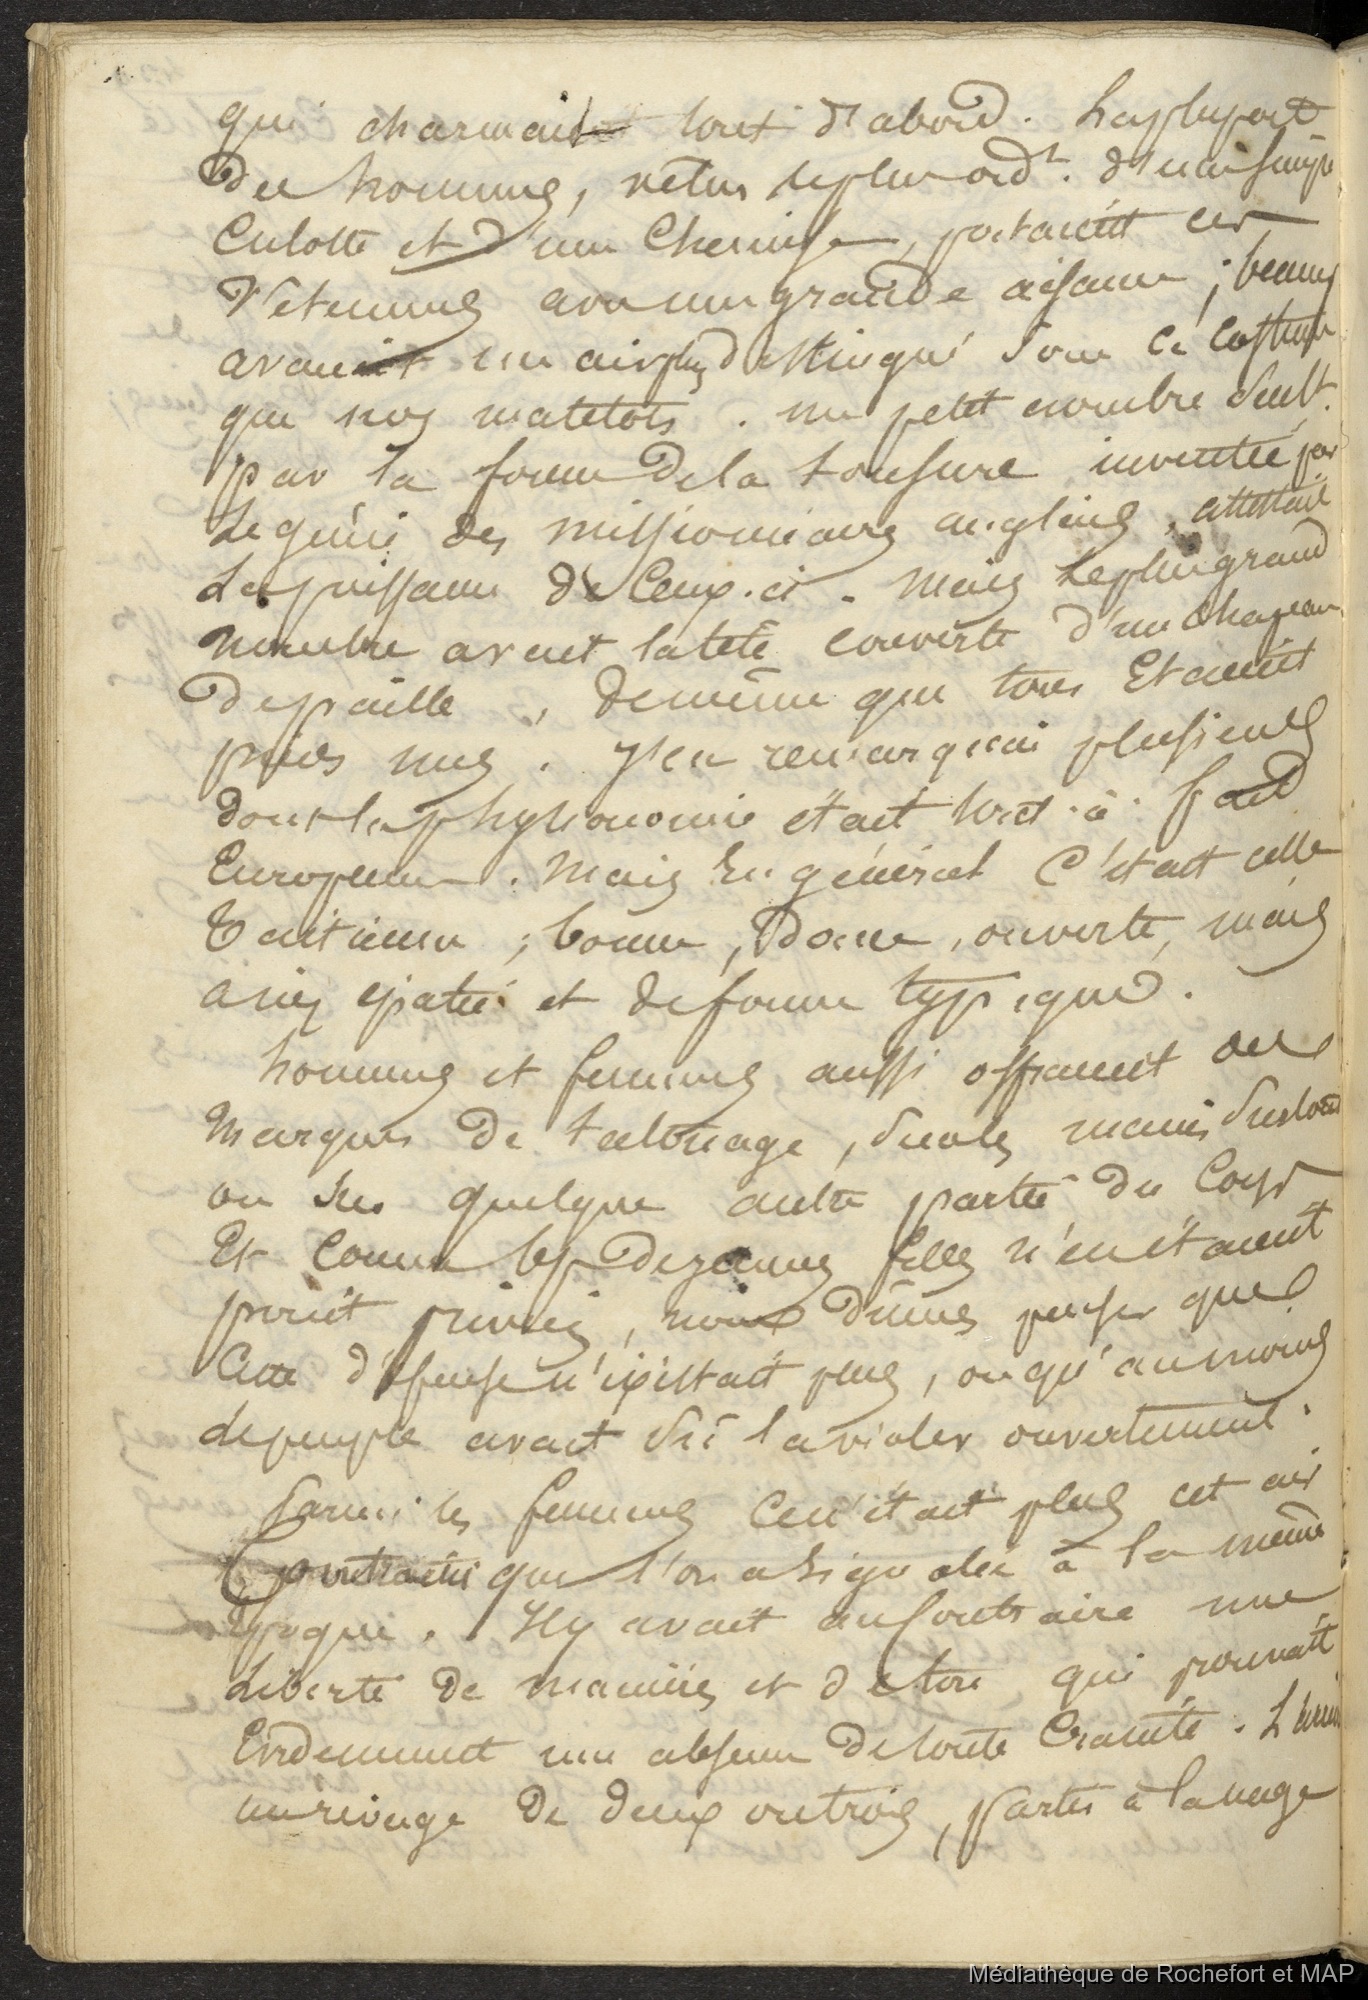 qui charmait tout d'abord. La plupart
des hommes, vêtus le plus ordt. d'une simple
Culotte et d'une Chemise, portaient ces
Vêtemens avec une grande aisance ; beaucp
avaient un air plus distingué sous ce Costume
que nos matelots. un petit nombre seult.
par la forme de la tonsure inventée par
Le génie des missionnaires anglais, attestait
La puissance de Ceux-ci. mais Le plus grand
nombre avait la tête couverte d'un chapeau
de paille, de même que tous Etaient
pieds nus. J'en remarquai plusieurs
dont la physionomie était tout-à-fait
Européenne. Mais En général C'était celle
Taïtienne ; bonne, Douce, ouverte, mais
à nez épaté et de forme typique.
hommes et femmes aussi offraient des
Marques de tatouage, sur les mains, sur les bras
ou sur quelque autre partie du Corps
Et comme les plus jeunes filles n'en étaient
point privées, nous dûmes penser que
Cette défense n'existait plus, ou qu'au moins
Le peuple avait sû la violer ouvertement.
Parmi les femmes Ce n'était plus cet air
contraint que l'on a signalé à la même
Epoque. Il y avait au Contraire une
Liberté de manières et de ton qui prouvait
Evidemment une absence de toute Crainte. L'arrivée
au rivage de deux ou trois, parties à la nage
Médiathèque de Rochefort et MAP